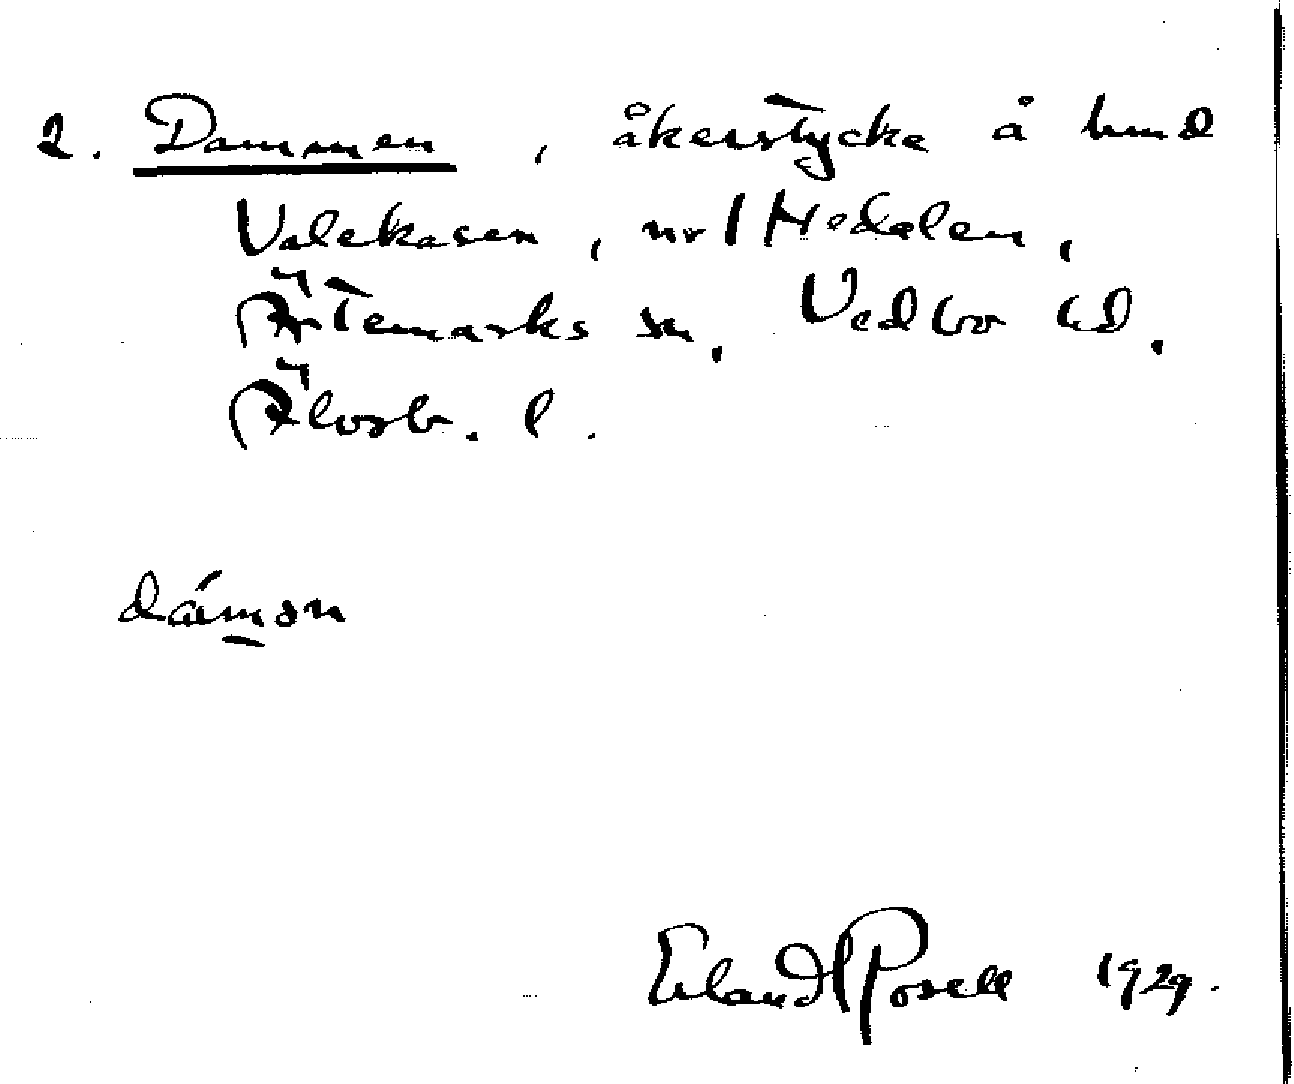 2. Dammen, åkerstycke å hmd
Valekasen, nr 1 Hedalen,
Ärtemarks sn. Vedbo hd.
Älvsb. l.
dámən
Erland Rosell 1929.